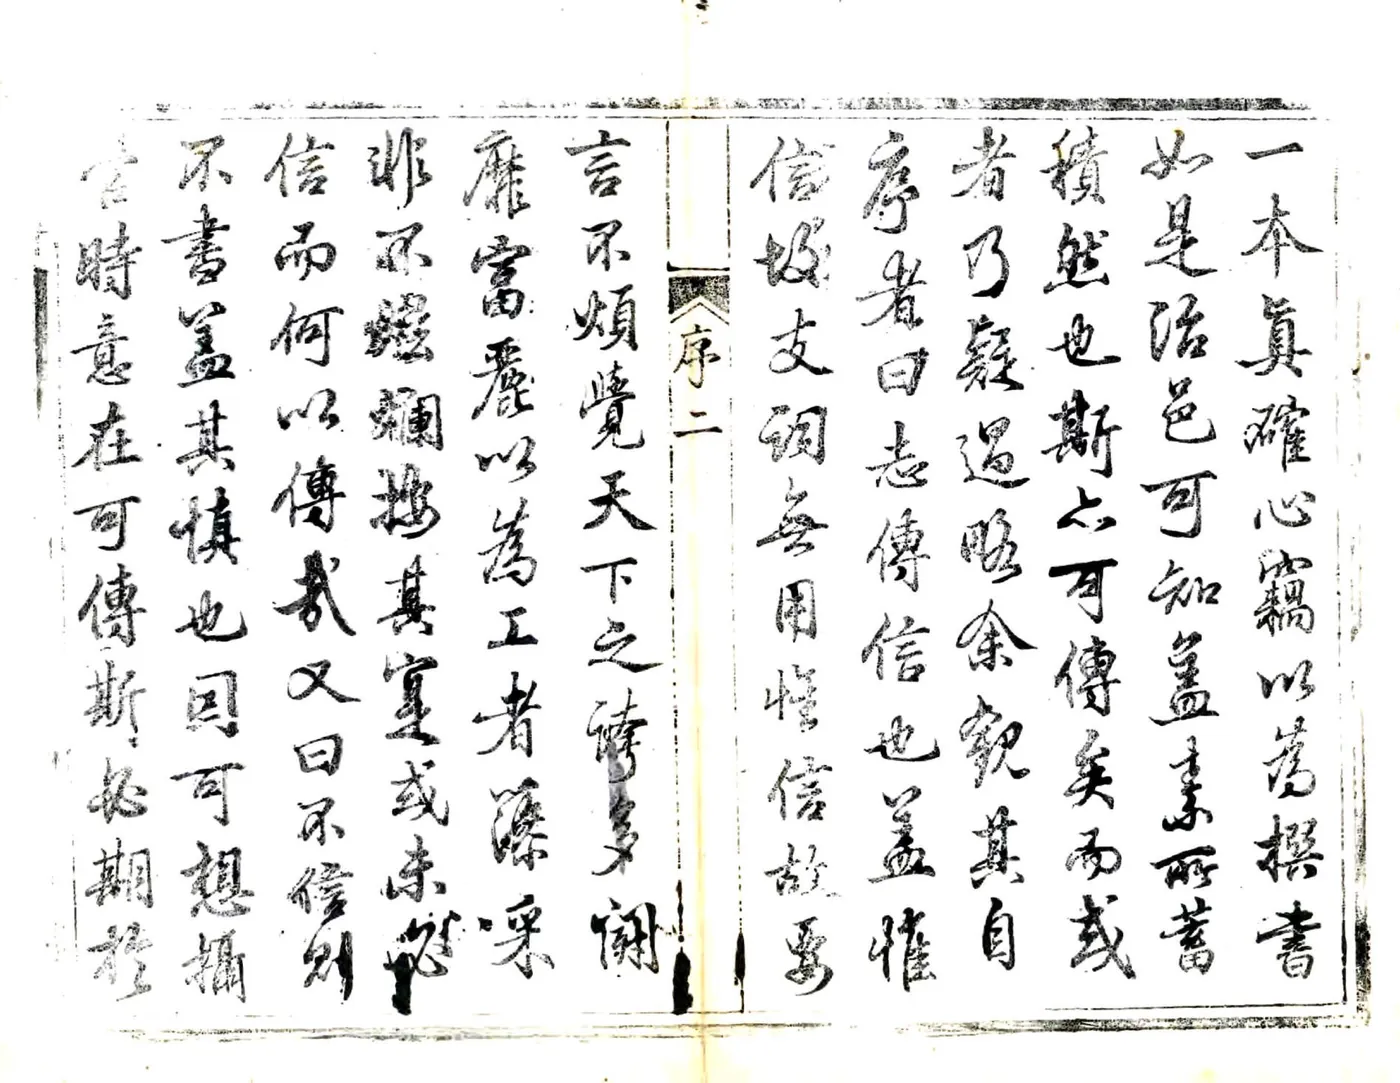 一本眞確心竊以為撰書
如是治邑可知蓋素所蓄
積然也斯亦可傳矣而或
者乃疑過略余觀其自
序者曰志傳信也蓋惟
信故支詞無用惟信故要
序二
言不煩覺天下之誇多鬭
靡富麗以為工者藻采
非不爛按其寔或未
信而何以傳哉又曰不信則
不書蓋其慎也因可想攝
官時意在可傳斯必期於